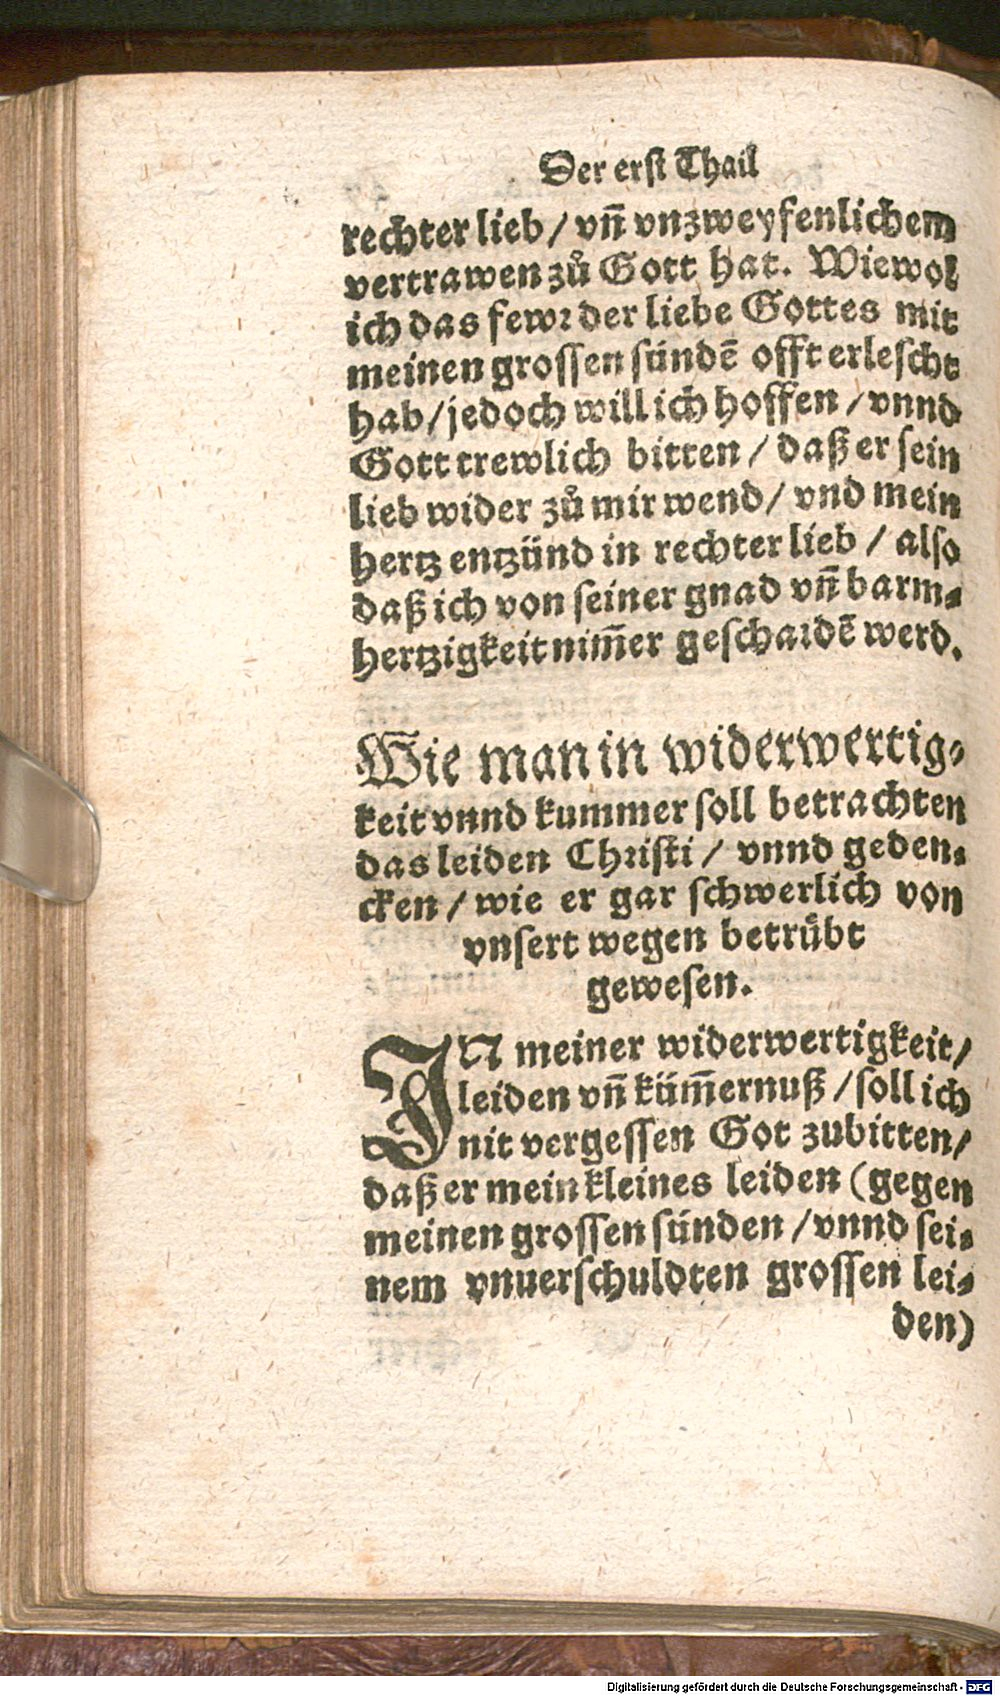 Der erst Thail
rechter lieb / vñ vnzweyfenlichem
vertrawen zů Gott hat. Wiewol
ich das fewꝛ der liebe Gottes mit
meinen grossen sündẽ offt erlescht
hab / jedoch will ich hoffen / vnnd
Gott trewlich bitten / daß er sein
lieb wider zů mir wend / vnd mein
hertz entzünd in rechter lieb / also
daß ich von seiner gnad vñ barm⸗
hertzigkeit nim̃er geschaidẽ werd.
Wie man in widerwertig⸗
keit vnnd kummer soll betrachten
das leiden Chꝛisti / vnnd geden⸗
cken / wie er gar schwerlich von
vnsert wegen betrůbt
gewesen.
IN meiner widerwertigkeit /
leiden vñ küm̃ernuß / soll ich
nit vergessen Got zubitten /
daß er mein kleines leiden (gegen
meinen grossen sünden / vnnd sei⸗
nem vnuerschuldten grossen lei⸗
den)
Digitalisierung gefördert durch die Deutsche Forschungsgemeinschaft - DFG